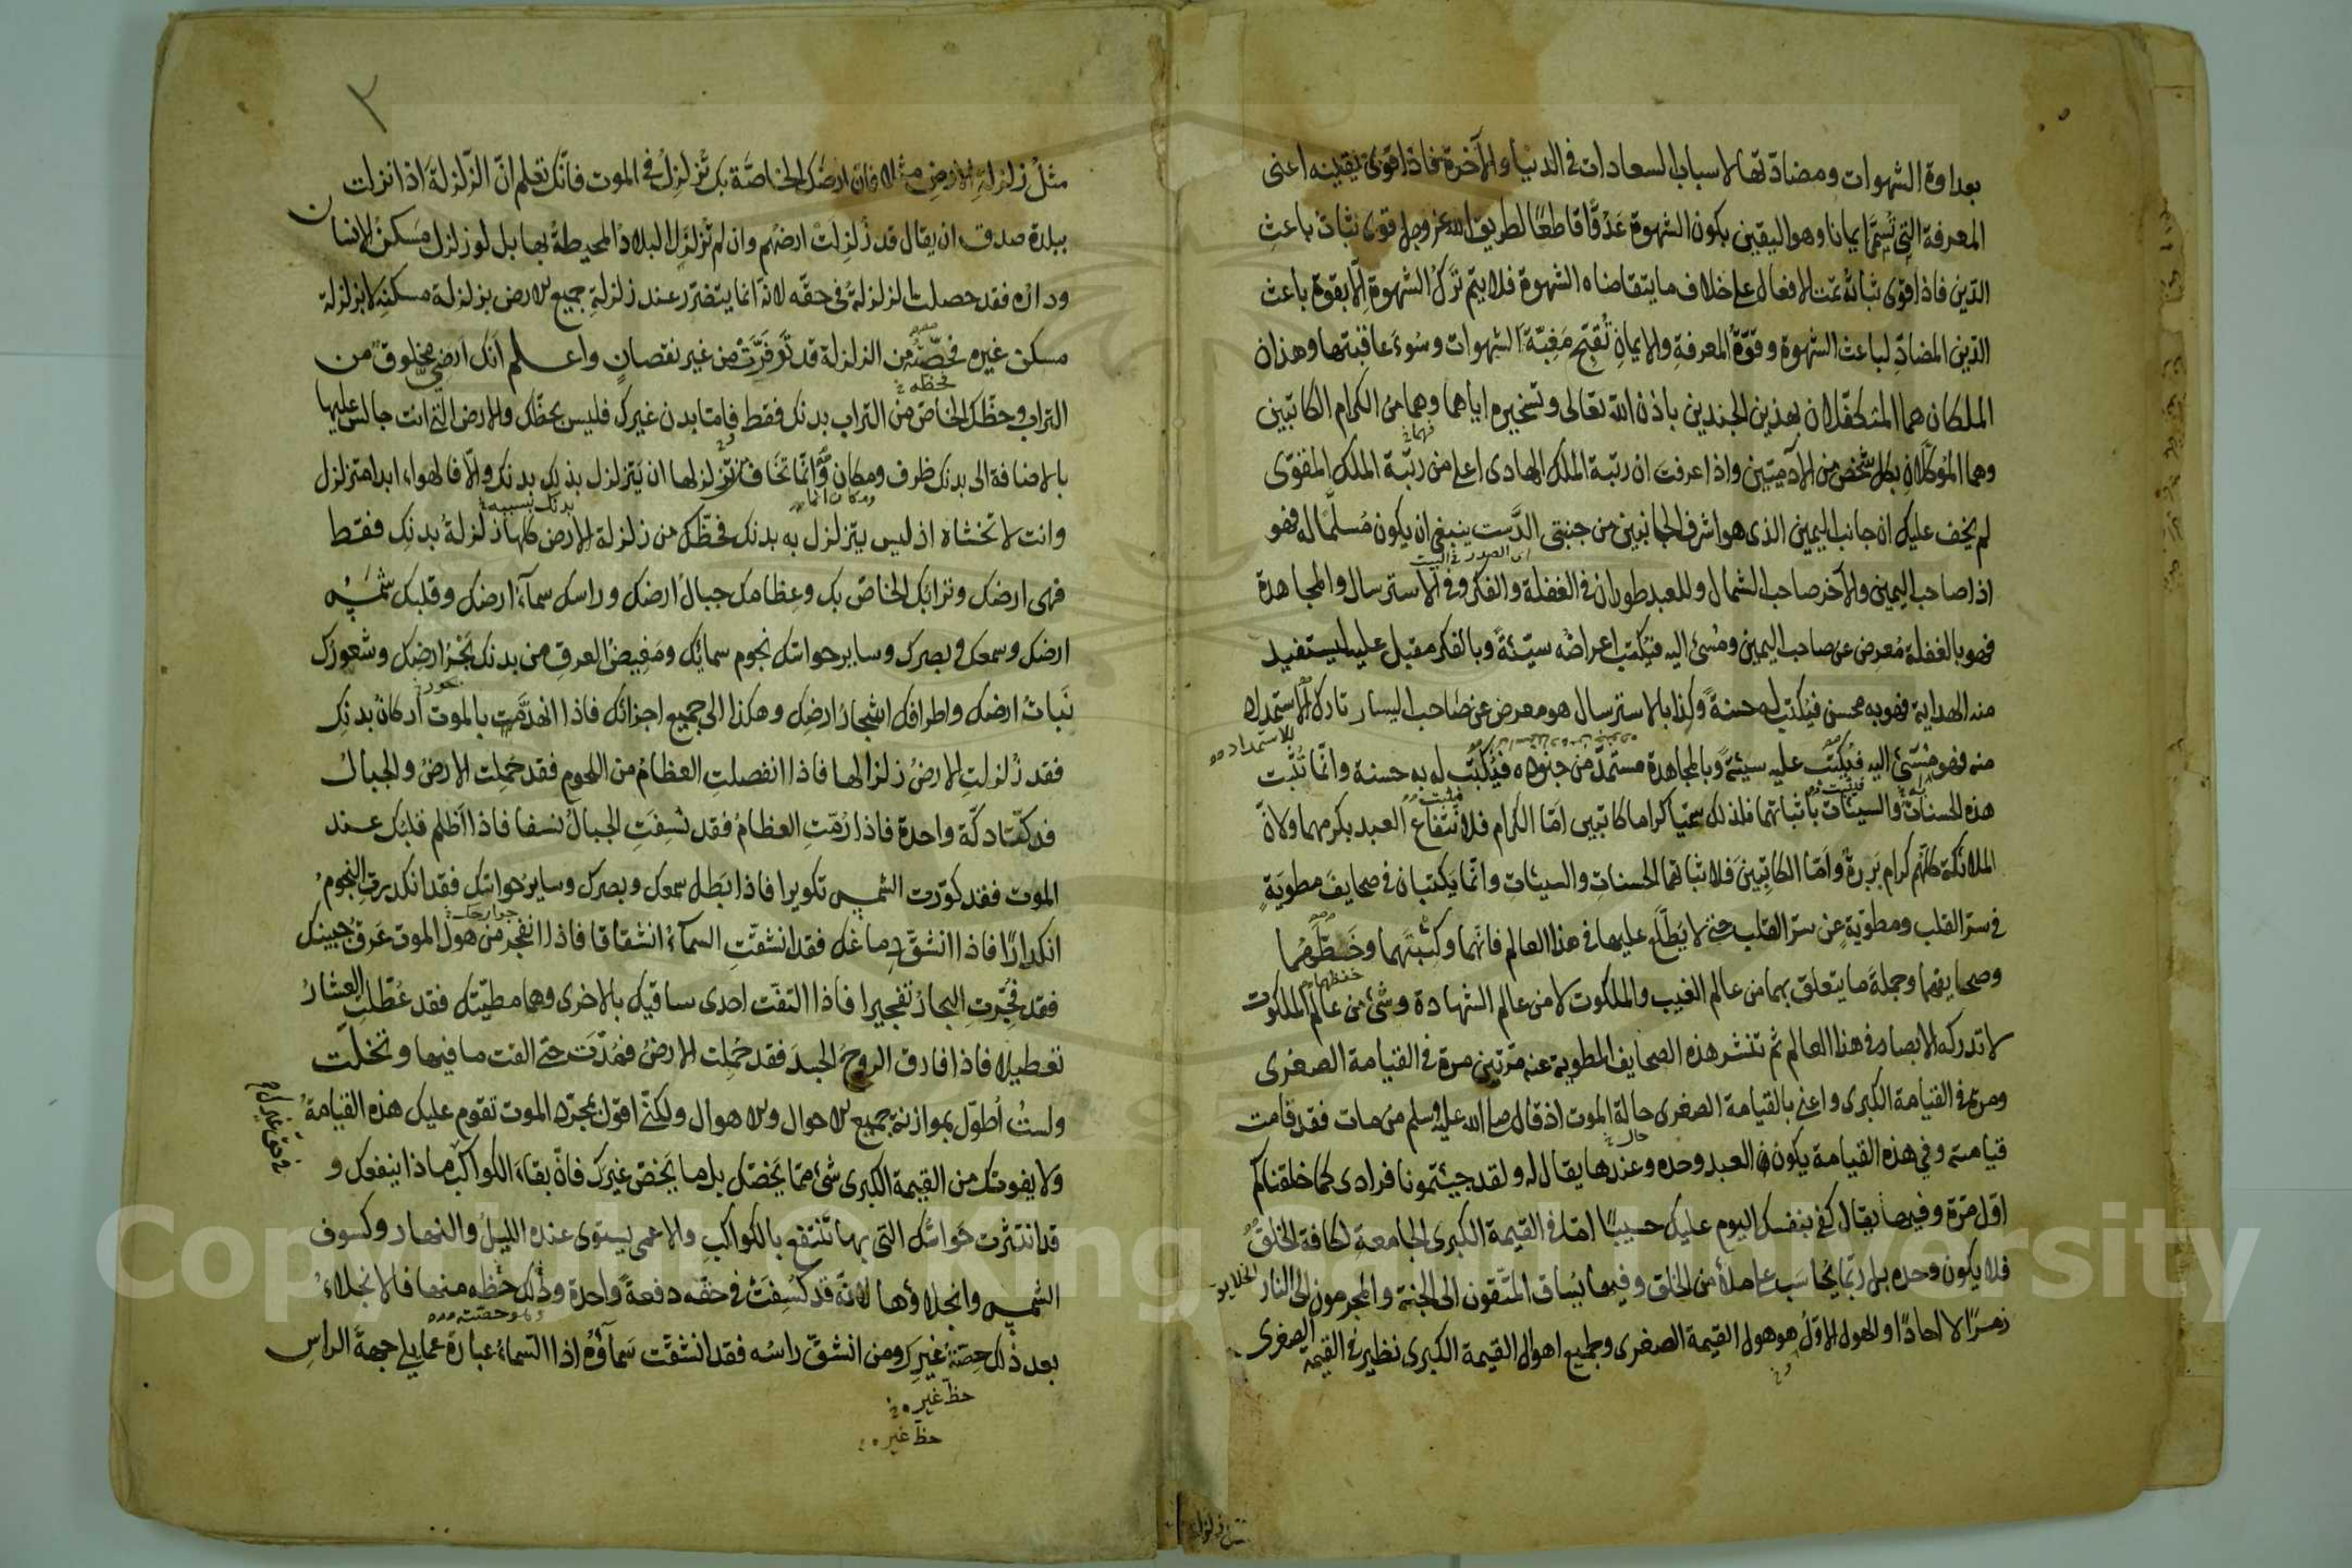 بعداوة الشهوات ومضادّتها لاسباب السعادات في الدنيا والآخرة فاذا قوى يقينه اعنى
المعرفة التي تُسمَّى ايمانا وهو اليقين بكون الشهوة عَدُوًّا قاطعًا لطريق الله عز وجل قوى ثباتُ باعثِ
الدّين فاذا قوى ثباتُه تمت الافعال على خلاف ما يتقاضاه الشهوة فلا يتم تركُ الشهوةِ الّا بقوة باعث
الدّين المضادِّ لباعث الشهوة وقوّةُ المعرفةِ والايمانِ تُقبّح مَغبّةَ الشهوات وسُوءَ عاقبتها وهذان
الملكان هما المتكفّلان بهذين الجندين باذن الله تعالى وتسخيره اياهما وهما من الكرام الكاتبين
وهما الموكّلانِ بكل شخص من الآدميّين واذا عرفت ان رتبة الملك الهادى اعلى من رتبة الملك المقوّى
لم يخف عليك ان جانب اليمين الذى هو اشرف الجانبين من جنبتى الدَّست ينبغى ان يكون مُسلّمًا له فهو
اى الصدر في البيت
اذا صاحب اليمين والآخر صاحب الشمال وللعبد طوران في الغفلة والفكر وفى الاسترسال والمجاهدة
فهو بالغفلة مُعرِض عن صاحب اليمين ومُسئ اليه فيُكتب اعراضُه سيّئةً وبالفكر مقبل عليه ليستفيد
منه الهداية فهو به محسن فيُكتب له حسنةً وكذا بالاسترسال هو معرض عن صاحب اليسار تارك الاستمداد
للاستمداد
منه فهو مُسْئ اليه فيُكتب عليه سيئةً وبالمجاهدة مستمدٌّ من جنوده فيُكتب له به حسنة وانّما تُثبت
هذه الحسناتُ والسيّئات باثباتهما فلذلك سمّيا كراما كاتبين امّا الكرام فلانتفاع العبد بكرمهما ولانّ
الملائكة كلّهم كرام بَرَرةٌ وامّا الكاتبينَ فلاثباتهما الحسناتِ والسيئاتِ وانّما يكتبان في صحايفَ مطويّةٍ
في سرّ القلب ومطويّةٍ عن سرّ القلب حتى لا يُطّلَع عليها في هذا العالم فانهما وكتْبتَهما وخَطَّهما
وصحايفهما وجملةَ ما يتعلق بهما من عالم الغيب والملكوت لا من عالم الشهادة وشئ من عالم الملكوت
لا تدركه الابصار في هذا العالم ثم تنشر هذه الصحايف المطوية عنه مرّتين مرة في القيامة الصغرى
ومرة في القيامة الكبرى واعنى بالقيامة الصغرى حالة الموت اذ قال صلى الله عليه وسلم من مات فقد قامت
قيامته وفي هذه القيامة يكون العبد وحده وعندها يقال له ولقد جئتمونا فرادى كما خلقناكم
اوّل مرّة وفيها يقال كفى بنفسك اليوم عليك حسيبًا امّا في القيمة الكبرى الجامعة لكافة الخلق
الخلايق
فلا يكون وحده بل ربّما يُحاسَب على ملأ من الخلق وفيها يُساق المتّقون الى الجنة والمجرمون الى النار
زمرًا لا احادًا والهول الاوّلُ هو هول القيمة الصغرى وجميع اهوال القيمة الكبرى نظير في القيمة الصغرى
مثل زلزلة
٢
مثلُ زلزلةِ الارضِ مثلا فان ارضَك الخاصّة بك تُزلزِلُ في الموت فانّك تعلم انّ الزّلزلةَ اذا نزلت
ببلدة صدق ان يقال قد زُلزِلتْ ارضهُم وان لم تُزلزَلِ البلادُ المحيطةُ بها بل لو زلزل مَسكنُ الانسان
ودارُه فقد حصلت الزلزلةُ في حقّه لانّه انما يتضرّر عند زلزلةِ جميع الارض بزلزلة مسكنِه لا بزلزلة
مسكن غيره فحصّتُه من الزلزلة قد توفّرَتْ من غير نقصانٍ واعلم انّك ارضىٌّ مخلوقٌ من
التراب وحظّك الخاصّ من التراب بدنك فقط فامّا بدن غيرك فليس بحظّك والارض التى انت جالس عليها
بالاضافة الى بدنك ظرف ومكان وَانّما تخاف تزلزلها ان يَتزلزل بذلك بدنك والّا فالهواء ابدا متزلزل
وانت لا تخشاه اذ ليس يتزلزل به بدنك فحظّك من زلزلة الارض كلها زلزلةُ بدنك فقط
فهى ارضك وترابك الخاصّ بك وعظامك جبالُ ارضك وراسك سمآءُ ارضك وقلبك شمسُ
ارضك وسمعك وبصرك وساير حواسّك نجوم سمائِك ومَفِيضُ العرقِ من بدنك بَحْرُ ارضِك وشعورُك
نَباتُ ارضك واطرافك اشجارُ ارضِك وهكذا الى جميع اجزائك فاذا انهدَّمت بالموت اركانُ بدنِك
فقد زُلزلتِ الارضُ زلزالها فاذا انفصلتِ العظامُ من اللحوم فقد حُمِلت الارضُ والجبالُ
فدكّتا دكّة واحدة فاذا رُمّتِ العظامُ فقد نُسِفَتِ الجبالُ نسفا فاذا اَظلم قلبُك عند
الموت فقد كوّرت الشمس تكويرا فاذا بَطل سمعك وبصرك وساير حواسّك فقد انكدرت النجومُ
انكدارًا فاذا انشقَّ دماغك فقد انشقّتِ السمآءُ انشقاقا فاذا انفجر من هول الموت عَرق جبينِك
فقد فُجّرتِ البحارُ تفجيرا فاذا التفّت احدى ساقيك بالاخرى وهما مطيّتك فقد عُطّلت العشارُ
تعطيلا فاذا فارق الروحُ الجسدَ فقد حُمِلت الارضُ فمُدّت حتى القت ما فيها وتخلّت
ولستُ اُطوّل بموازنة جميع الاحوال والاهوال ولكنّى اقول بمجرّد الموت تقوم عليك هذه القيامةُ
ولا يفوتك من القيمة الكبرى شئ ممّا يَخصّك بل ما يَخصّ غيرك فانّ بقاءَ الكواكب ماذا ينفعك و
قد انتثرت حَواسّك التى بها تَنتفع بالكواكبِ والاعمى يستوى عنده الليلُ والنهار وكسوف
الشمس وانجلاؤها لانّه قد كُسِفَتْ في حقّه دفعةً واحدة وذلك حظّه منها فالانجلاءُ
بعد ذلك حصّةُ غيرِك ومن انشقّ راسُه فقد انشقّت سَمآؤُه اذ السّماءُ عبارة عمّا يلى جهةَ الراسِ
حظّ غيره
حظّ غيره
Copyright © King Saud University